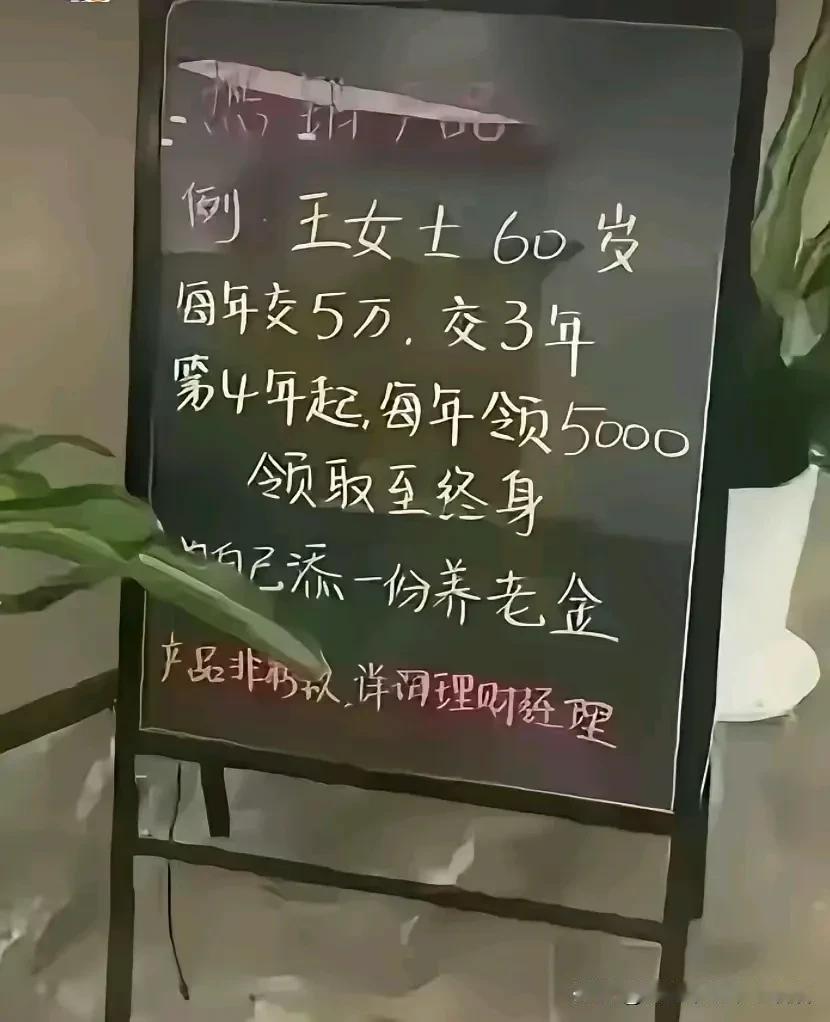 产品
例.王女士 60岁
每年交5万.交3年
第4年起,每年领5000
领取至终身
自己添一份养老金
产品非,详询理财经理